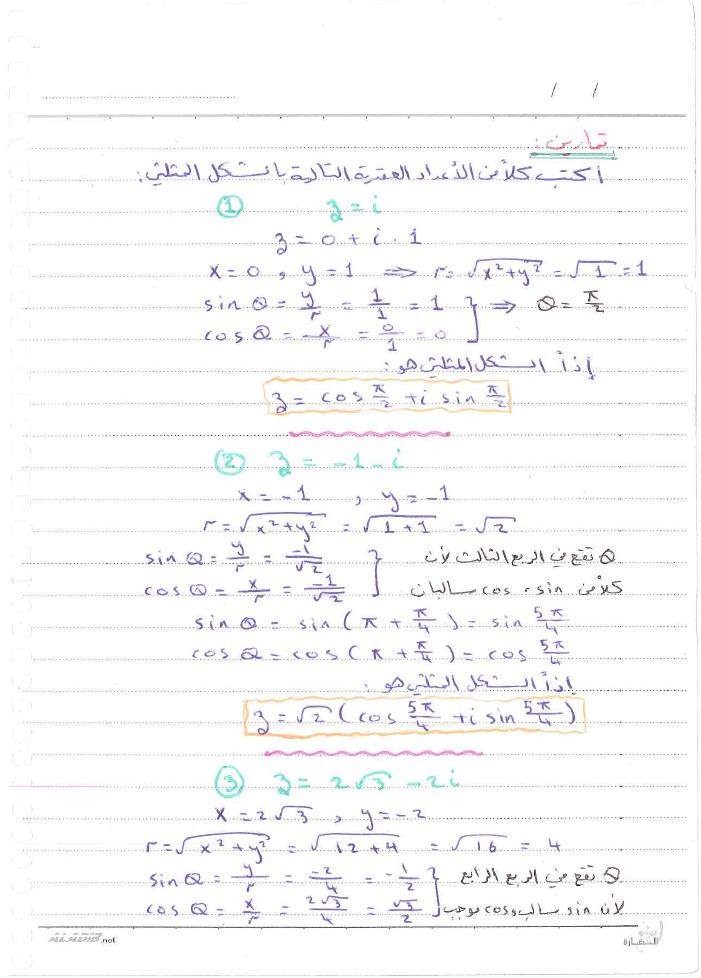 / /
تمارين:
اكتب كلاً من الأعداد العقدية التالية بالشكل المثلثي:
① z = i
z = 0 + i . 1
x = 0 , y = 1 ⟹ r = √(x² + y²) = √1 = 1
sin θ = y/r = 1/1 = 1
cos θ = x/r = 0/1 = 0 } ⟹ θ = π/2
إذاً الشكل المثلثي هو:
z = cos π/2 + i sin π/2
② z = -1 - i
x = -1 , y = -1
r = √(x² + y²) = √(1 + 1) = √2
sin θ = y/r = -1/√2 } θ تقع في الربع الثالث لأن
cos θ = x/r = -1/√2 كلاً من sin ، cos سالبان
sin θ = sin ( π + π/4 ) = sin 5π/4
cos θ = cos ( π + π/4 ) = cos 5π/4
إذاً الشكل المثلثي هو:
z = √2 ( cos 5π/4 + i sin 5π/4 )
③ z = 2√3 - 2i
x = 2√3 , y = -2
r = √(x² + y²) = √(12 + 4) = √16 = 4
sin θ = y/r = -2/4 = -1/2 } θ تقع في الربع الرابع
cos θ = x/r = 2√3/4 = √3/2 لأن sin سالب و cos موجب
.net